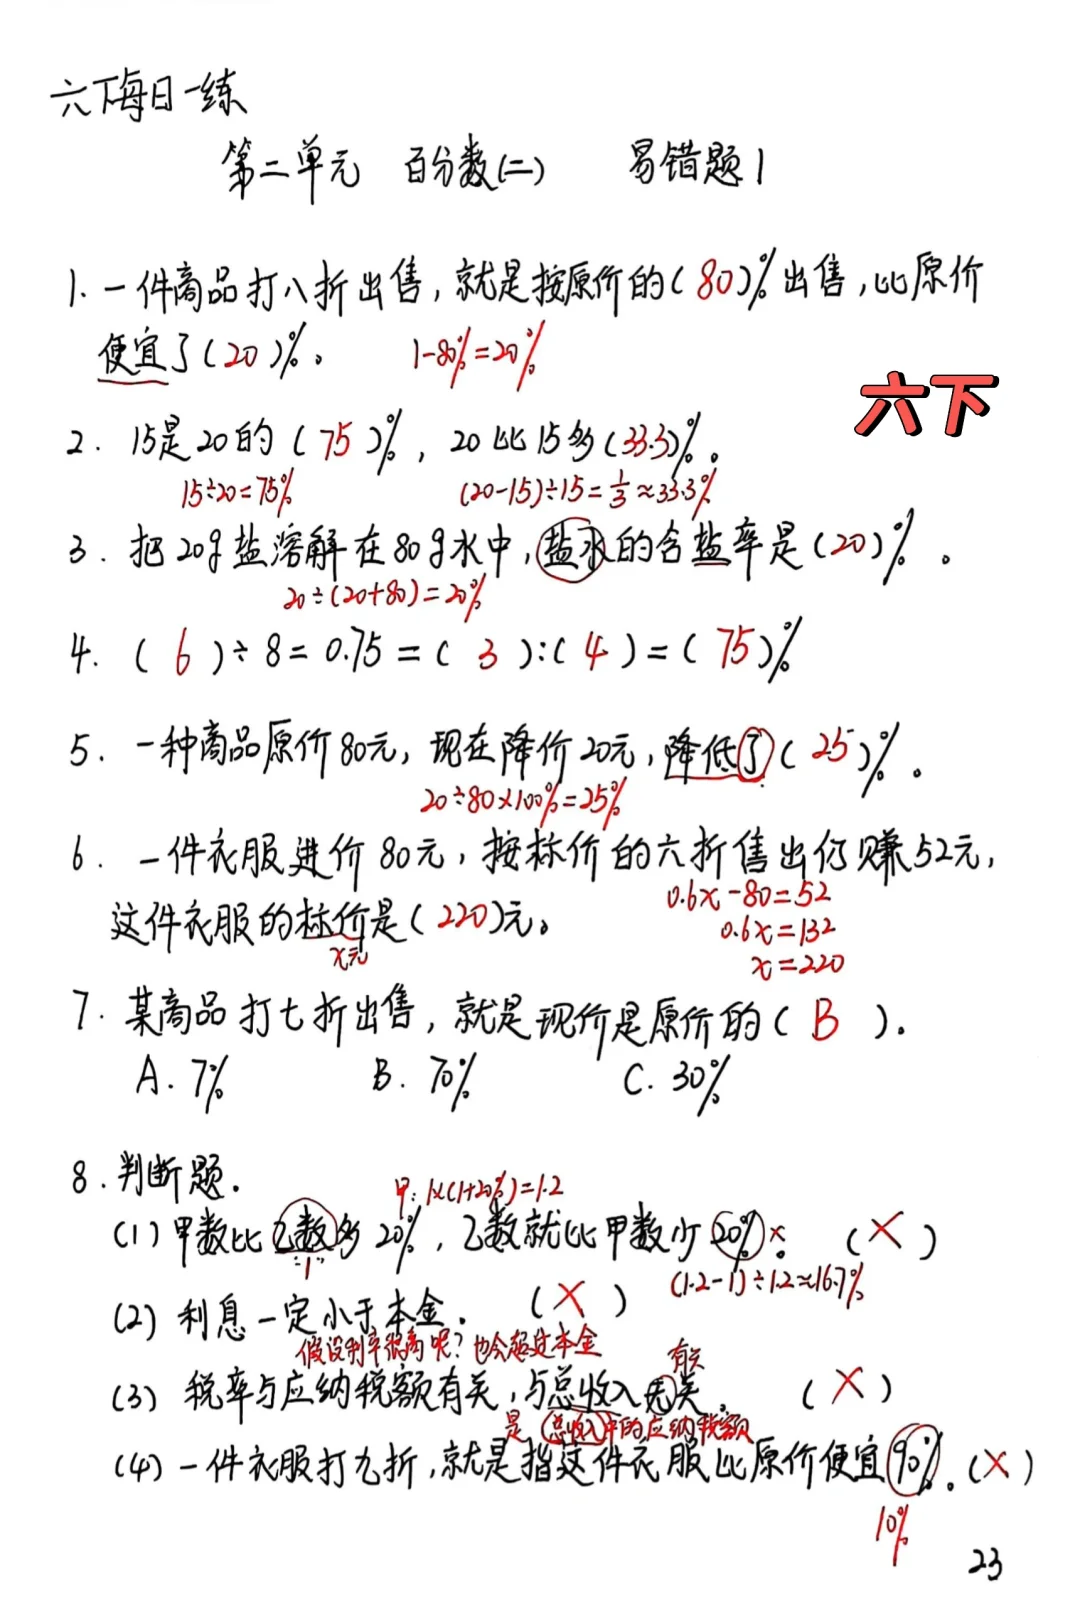 六下每日一练
第二单元 百分数(二) 易错题1
1. 一件商品打八折出售,就是按原价的(80)%出售,比原价
便宜了(20)%。 1-80%=20%
六下
2. 15是20的(75)%,20比15多(33.3)%。
15÷20=75% (20-15)÷15=1/3≈33.3%
3. 把20g盐溶解在80g水中,盐水的含盐率是(20)%。
20÷(20+80)=20%
4. (6)÷8=0.75=(3):(4)=(75)%
5. 一种商品原价80元,现在降价20元,降低了(25)%。
20÷80×100%=25%
6. 一件衣服进价80元,按标价的六折售出仍赚52元,
0.6x-80=52
这件衣服的标价是(220)元。 0.6x=132
x元 x=220
7. 某商品打七折出售,就是现价是原价的(B)。
A. 7% B. 70% C. 30%
8. 判断题.
甲:1×(1+20%)=1.2
(1)甲数比乙数多20%,乙数就比甲数少20%。×(×)
"1" (1.2-1)÷1.2≈16.7%
(2)利息一定小于本金.(×)
假设利率很高呢?也会超过本金
有关
(3)税率与应纳税额有关,与总收入无关.(×)
是总收入中的应纳税额
(4)一件衣服打九折,就是指这件衣服比原价便宜90%。(×)
10%
23